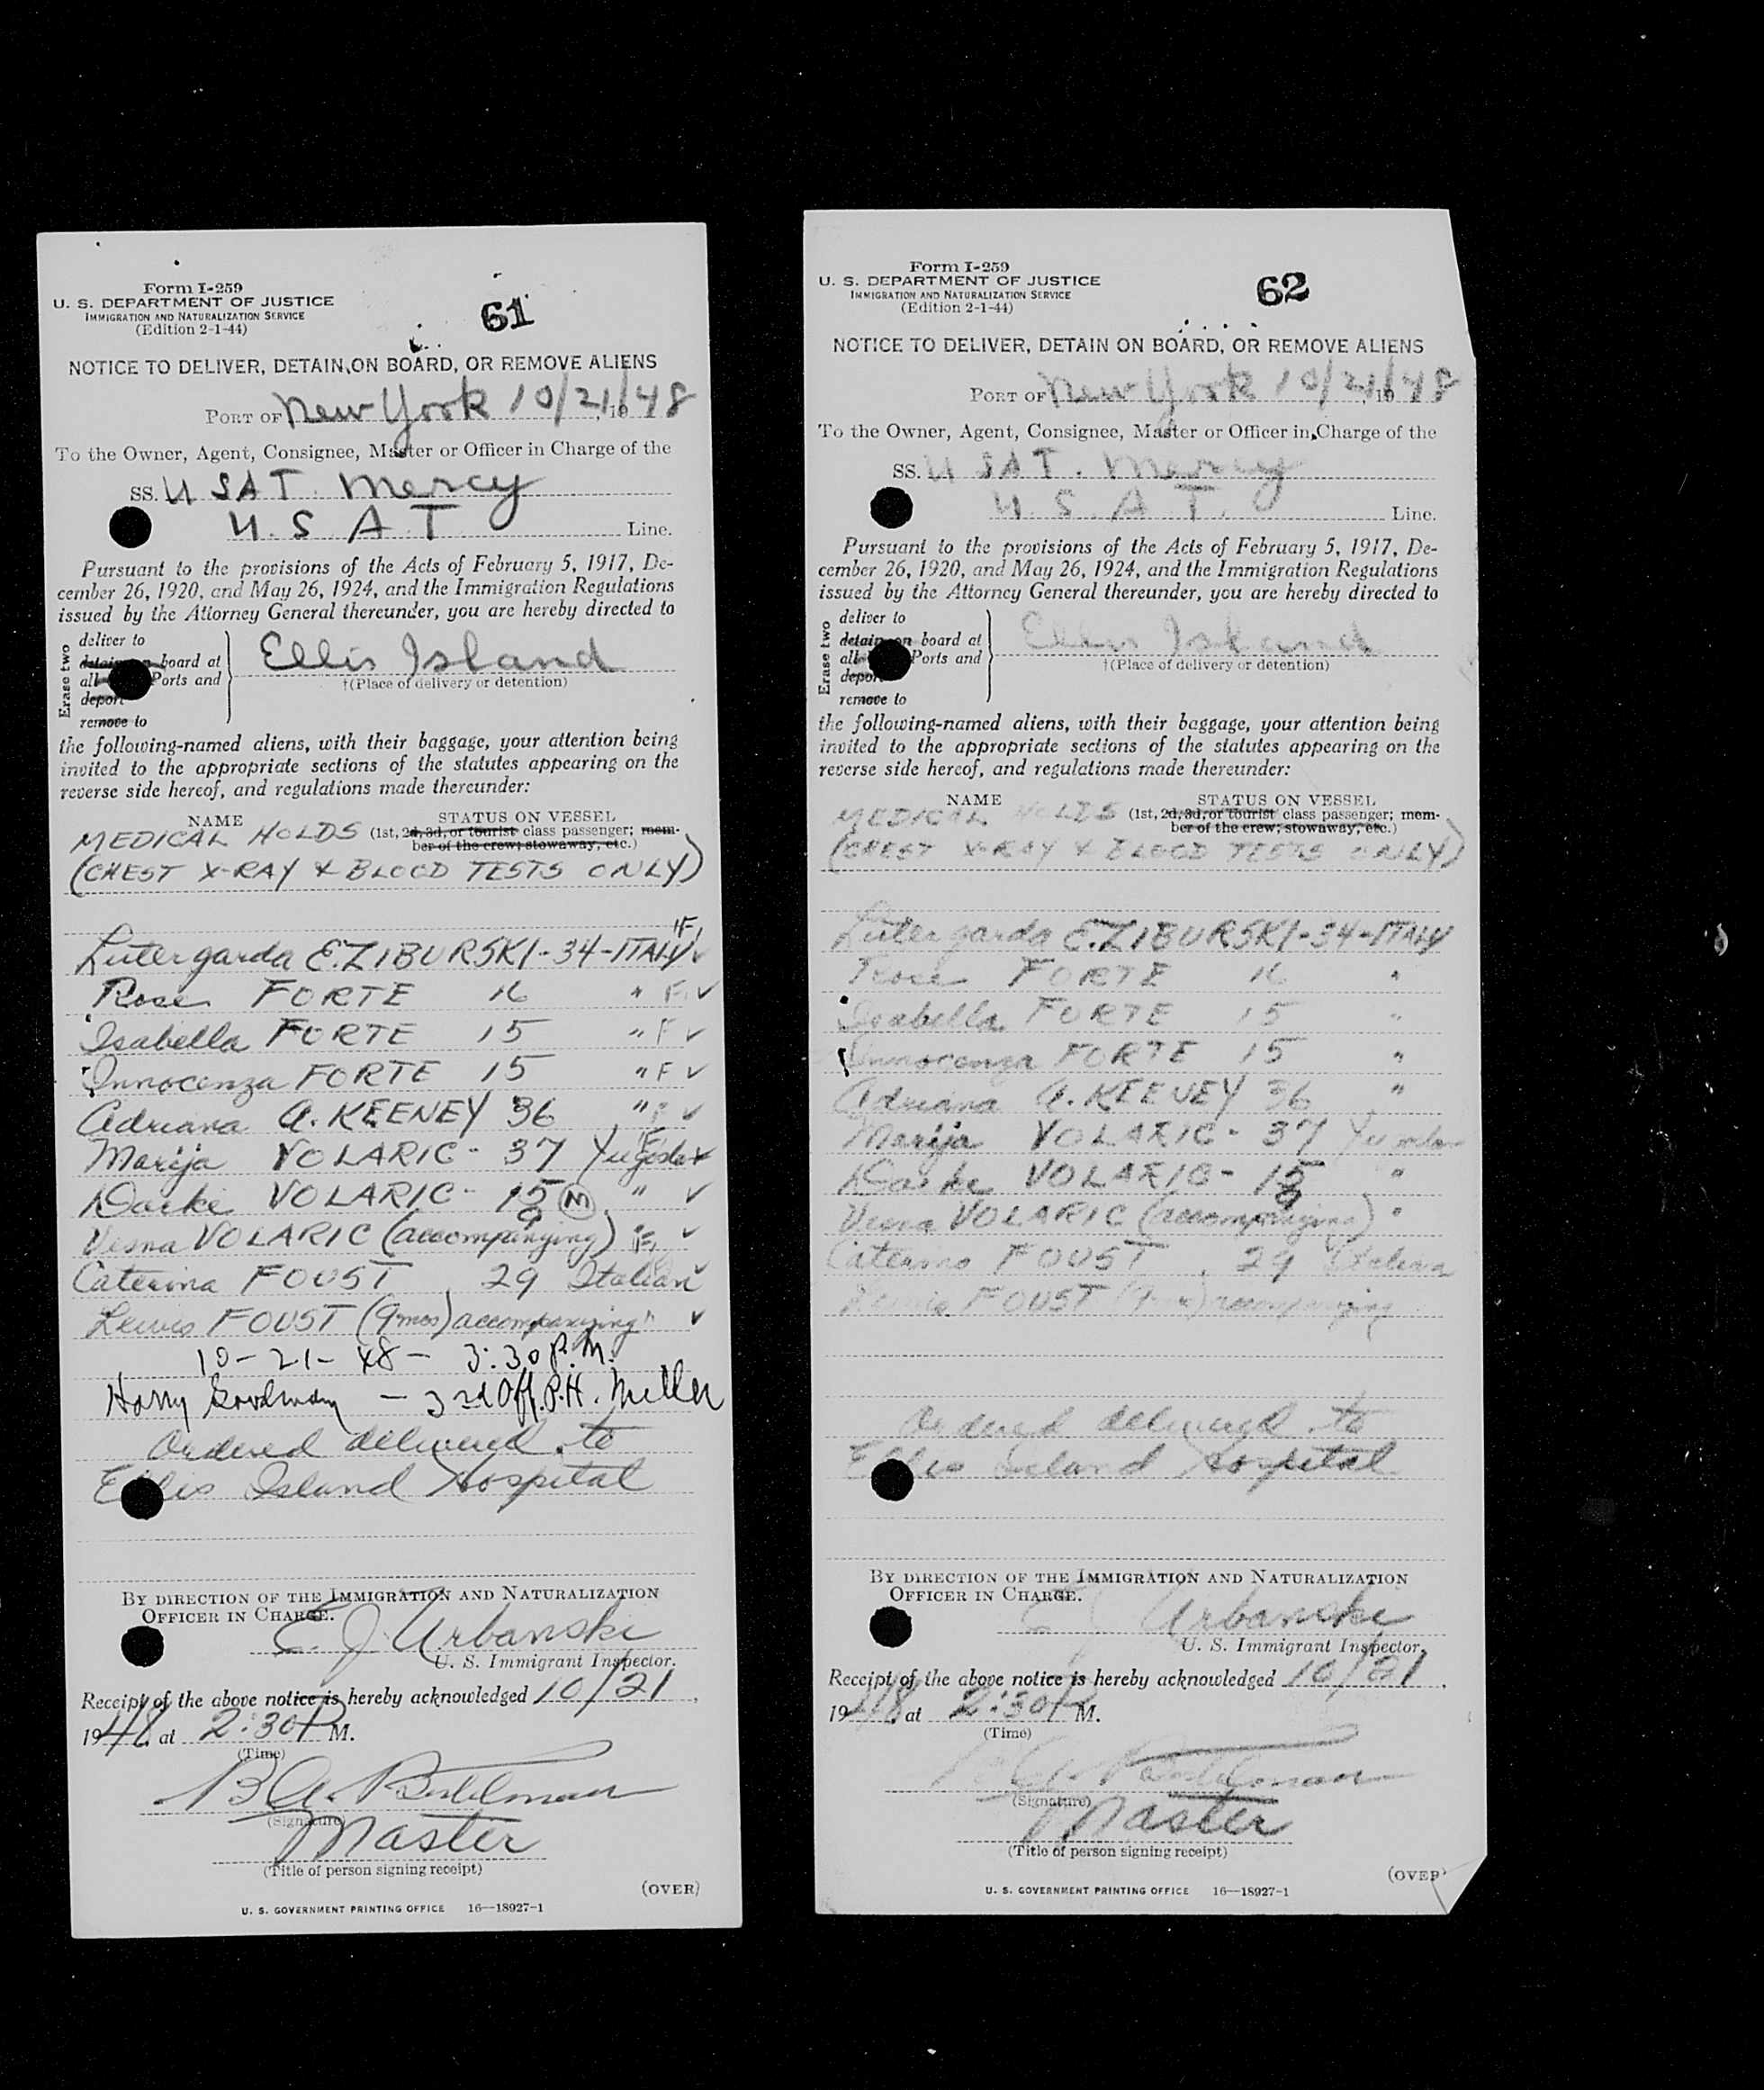 Form I-259
U. S. DEPARTMENT OF JUSTICE
IMMIGRATION AND NATURALIZATION SERVICE
(Edition 2-1-44)
61
NOTICE TO DELIVER, DETAIN ON BOARD, OR REMOVE ALIENS
PORT OF New York 10/21/, 19 48
To the Owner, Agent, Consignee, Master or Officer in Charge of the
SS. USAT. Mercy
U. S. A. T Line.
Pursuant to the provisions of the Acts of February 5, 1917, De-
cember 26, 1920, and May 26, 1924, and the Immigration Regulations
issued by the Attorney General thereunder, you are hereby directed to
Erase two
deliver to
detain on board at
all Ports and
deport
remove to
Ellis Island
†(Place of delivery or detention)
the following-named aliens, with their baggage, your attention being
invited to the appropriate sections of the statutes appearing on the
reverse side hereof, and regulations made thereunder:
NAME STATUS ON VESSEL
MEDICAL HOLDS (1st, 2d, 3d, or tourist class passenger; mem-
ber of the crew; stowaway, etc.)
(CHEST X-RAY & BLOOD TESTS ONLY)
Lutergarda E. ZIBURSKI-34-ITALY F ✓
Rose FORTE 16 " F ✓
Isabella FORTE 15 " F ✓
Innocenza FORTE 15 " F ✓
Adriana A. KEENEY 36 " F ✓
Marija VOLARIC - 37 F ✓
VOLARIC - 15 M " ✓
Vesna VOLARIC (accompanying) " F ✓
9
Caterina FOUST 29 Italian ✓
Lewis FOUST (9mos) accompanying " ✓
10-21-48- 3:30 P.M.
Harry Goodman - 3rd Off. P.H. Miller
Ordered delivered to
Ellis Island Hospital
BY DIRECTION OF THE IMMIGRATION AND NATURALIZATION
OFFICER IN CHARGE.
E. J. Urbanski
U. S. Immigrant Inspector.
Receipt of the above notice is hereby acknowledged 10/21,
1948 at 2:30 P M.
(Time)
B A.
(Signature)
Master
(Title of person signing receipt)
(OVER)
U. S. GOVERNMENT PRINTING OFFICE 16—18927-1
Form I-259
U. S. DEPARTMENT OF JUSTICE
IMMIGRATION AND NATURALIZATION SERVICE
(Edition 2-1-44)
62
NOTICE TO DELIVER, DETAIN ON BOARD, OR REMOVE ALIENS
PORT OF New York 10/21/, 19 48
To the Owner, Agent, Consignee, Master or Officer in Charge of the
SS. USAT. Mercy
U. S. A T. Line.
Pursuant to the provisions of the Acts of February 5, 1917, De-
cember 26, 1920, and May 26, 1924, and the Immigration Regulations
issued by the Attorney General thereunder, you are hereby directed to
Erase two
deliver to
detain on board at
all Ports and
deport
remove to
Ellis Island
†(Place of delivery or detention)
the following-named aliens, with their baggage, your attention being
invited to the appropriate sections of the statutes appearing on the
reverse side hereof, and regulations made thereunder:
NAME STATUS ON VESSEL
MEDICAL HOLDS (1st, 2d, 3d, or tourist class passenger; mem-
ber of the crew; stowaway, etc.)
(CHEST X-RAY & BLOOD TESTS ONLY)
Lutergarda E. ZIBURSKI-34-ITALY
Rose FORTE 16 "
Isabella FORTE 15 "
Innocenza FORTE 15 "
Adriana A. KEENEY 36 "
Marija VOLARIC - 37
VOLARIC - 15 "
Vesna VOLARIC (accompanying) "
Caterina FOUST 29 Italian
Lewis FOUST (9mos) accompanying
Ordered delivered to
Ellis Island Hospital
BY DIRECTION OF THE IMMIGRATION AND NATURALIZATION
OFFICER IN CHARGE.
E J Urbanski
U. S. Immigrant Inspector.
Receipt of the above notice is hereby acknowledged 10/21,
1948 at 2:30 P M.
(Time)
(Signature)
Master
(Title of person signing receipt)
(OVER)
U. S. GOVERNMENT PRINTING OFFICE 16—18927-1